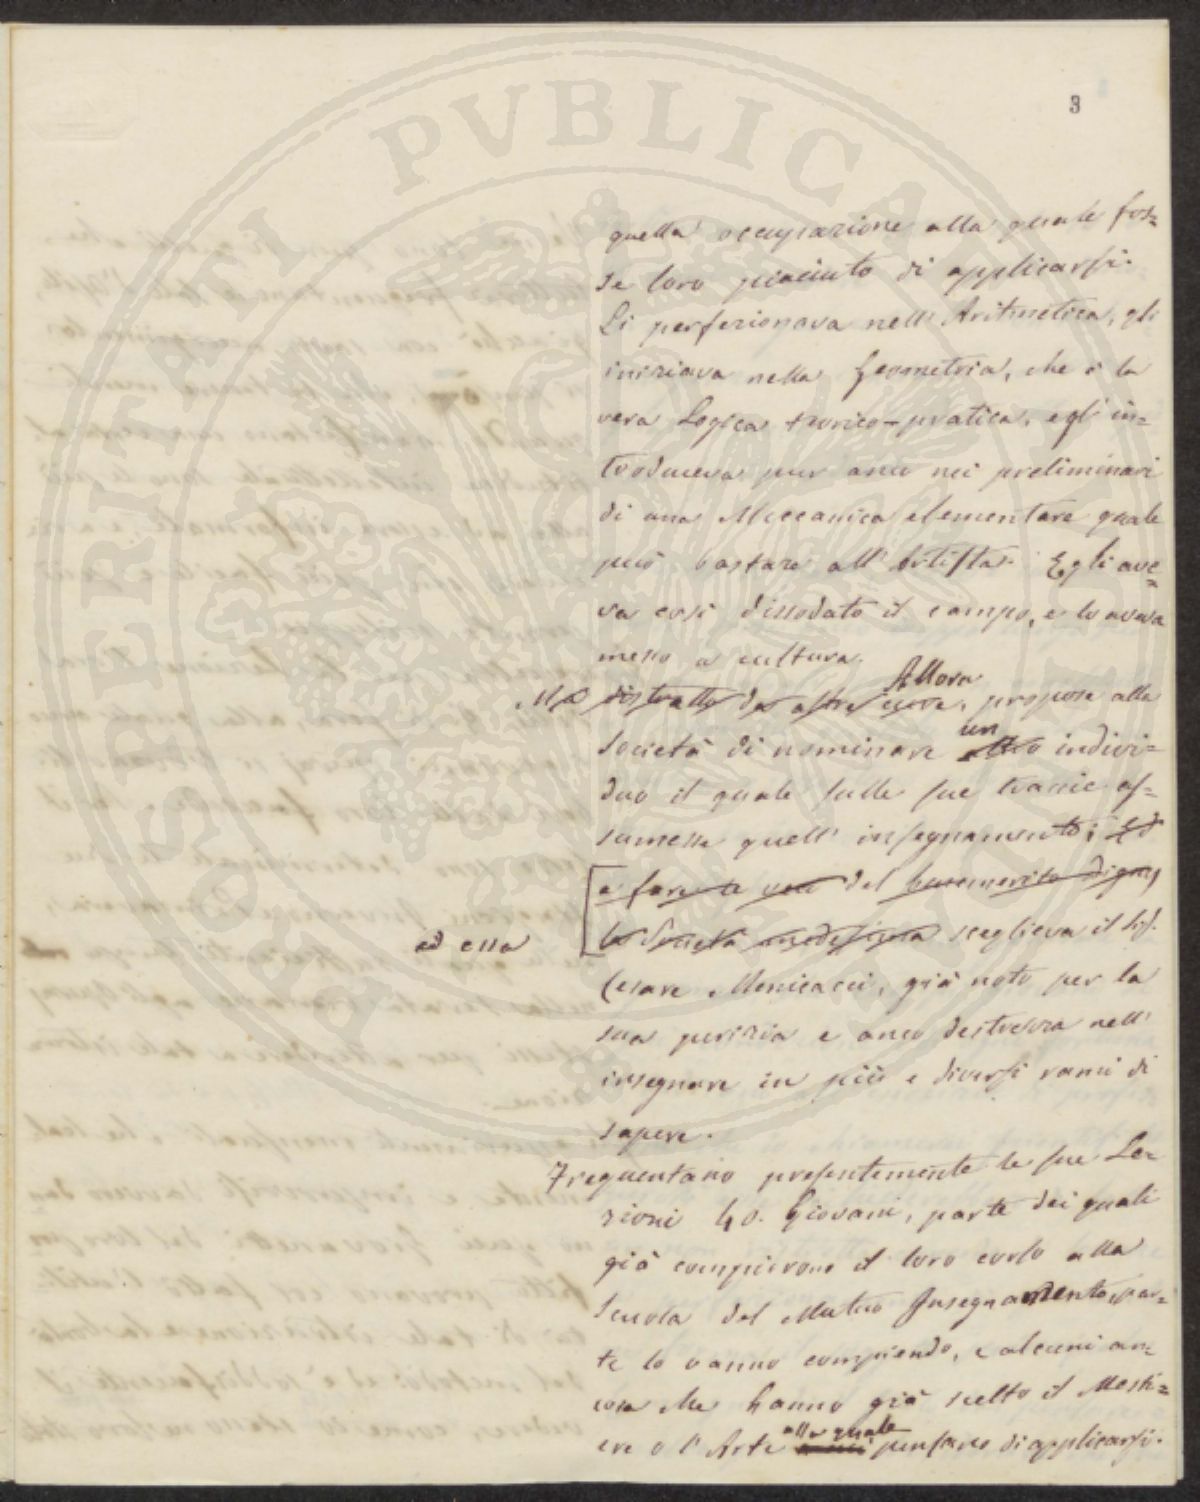 3
quella occupazione alla quale fos=
se loro piaciuto di applicarsi.
Li perfezionava nell' Aritmetica, gli
iniziava nella Geometria, che è la
vera Logica teorico-pratica, e gl' in=
troduceva pur anco nei preliminari
di una Meccanica elementare quale
può bastare all' Artista. Egli ave=
va così dissodato il campo, e lo aveva
messo a cultura.
Allora
Ma distratto da altre cure, propose alla
un
Società di nominare altro indivi=
duo il quale sulle sue traccie as=
sumesse quell' insegnamento; Ed
e fare le veci del benemerito
ad essa
la Società medesima sceglieva il Sig.
Cesare Menicacci, già noto per la
sua perizia e anco destrezza nell'
insegnare in più e diversi rami di
sapere.
Frequentano presentemente le sue Le=
zioni 40. Giovani, parte dei quali
già compierono il loro corso alla
Scuola del Mutuo Insegnamento, par=
te lo vanno compiendo, e alcuni an=
cora che hanno già scelto il Mesti=
alla quale
ere o l' Arte pensano di applicarsi.
PROSPERITATI PVBLICAE